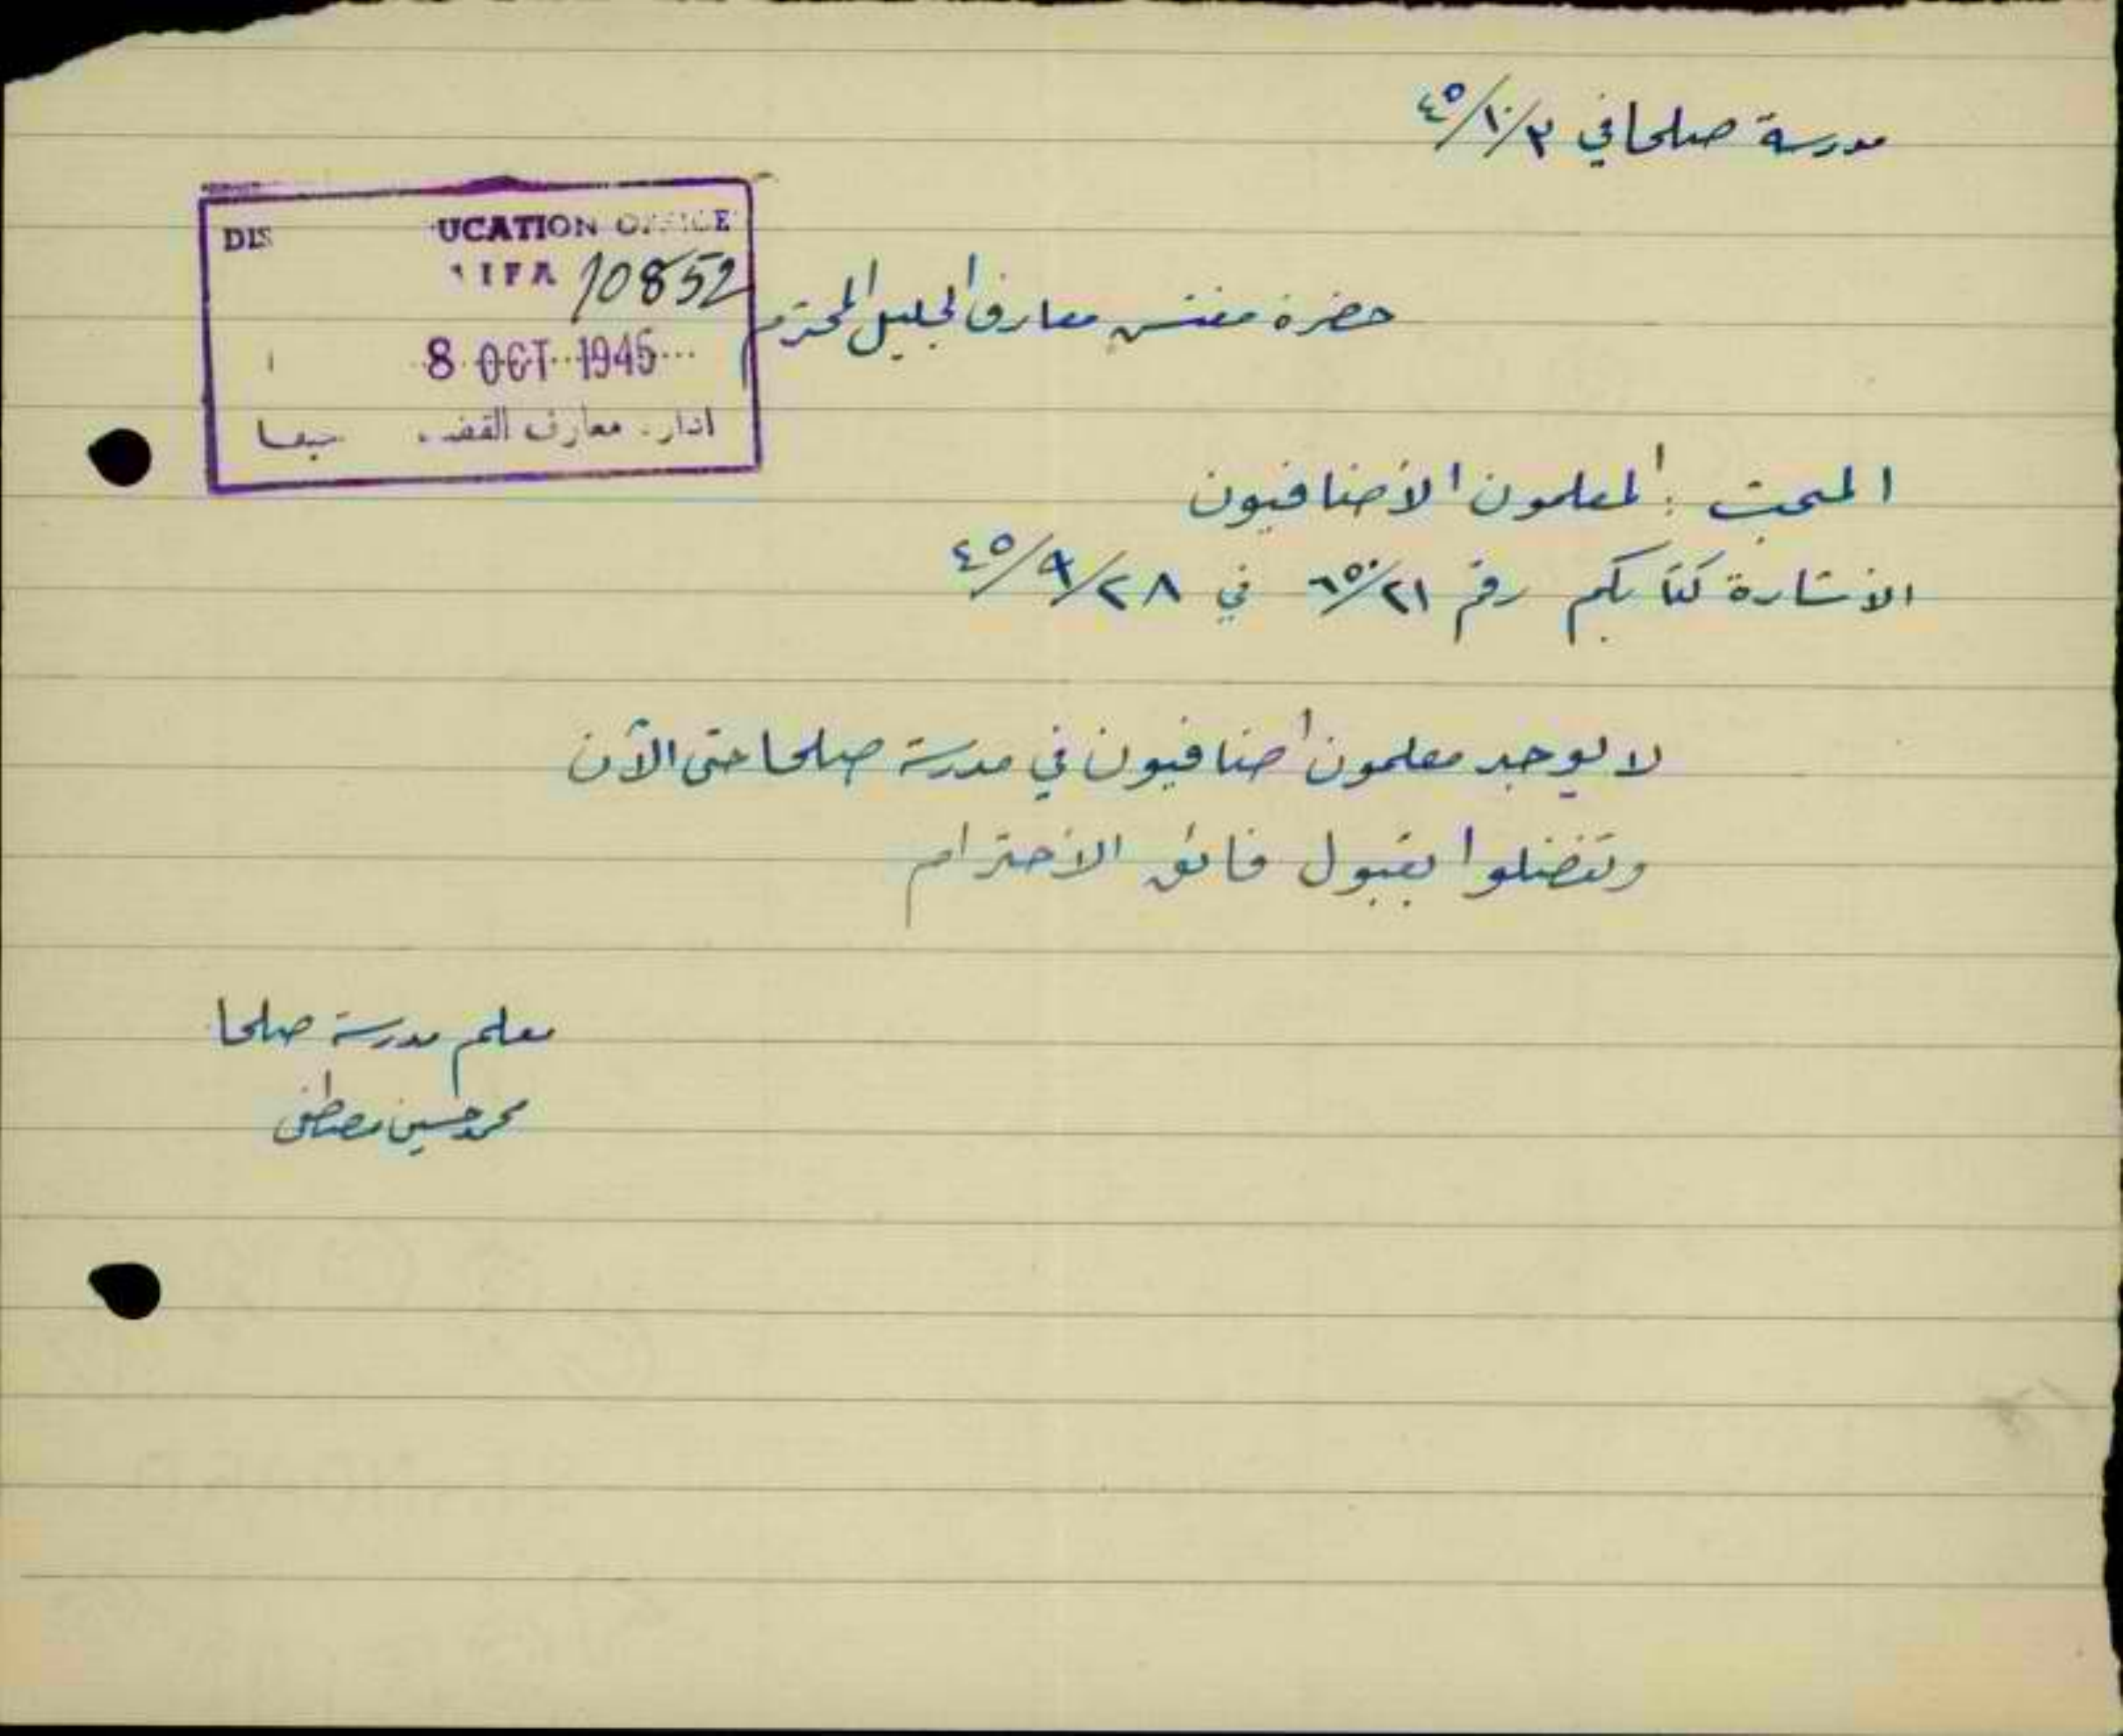 مدرسة صلحا في ٤٥/١٠/٣
DIS UCATION OFFICE
IFA 10852
8 OCT 1945
ادار معارف القضـ يفا
حضرة مفتش معارف الجليل المحترم
المبحث : المعلمون الاضافيون
الاشارة كتابكم رقم ٦٥٠/٢١ في ٤٥/٩/٢٨
لا يوجد معلمون اضافيون في مدرسة صلحا حتى الآن
وتفضلوا بقبول فائق الاحترام
معلم مدرسة صلحا
محمد حسين مصطفى